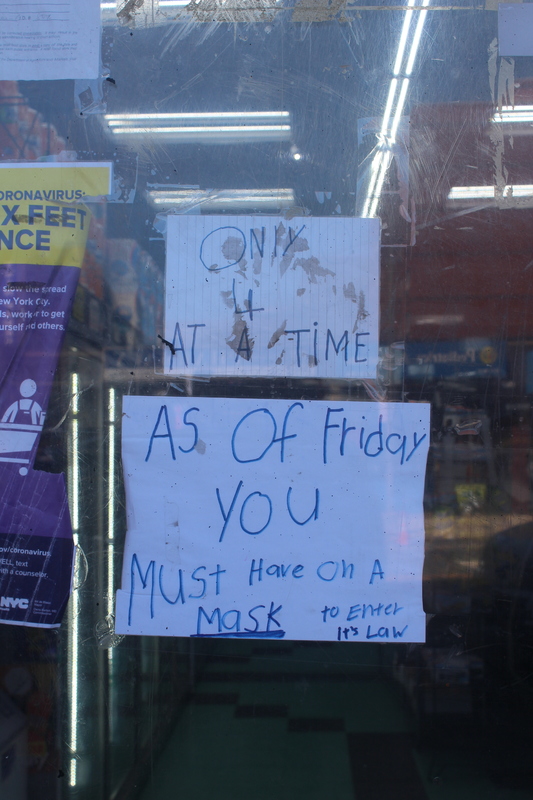 ORONAVIRUS:
X FEET
NCE
slow the spread
ew York City.
ls, worker to get
urself and others.
ov/coronavirus
ELL, text
ith a counselor.
NYC
ONlY
4
AT A TiME
AS Of Friday
YOU
MUSt Have On A
MASK to EntEr
It's LaW